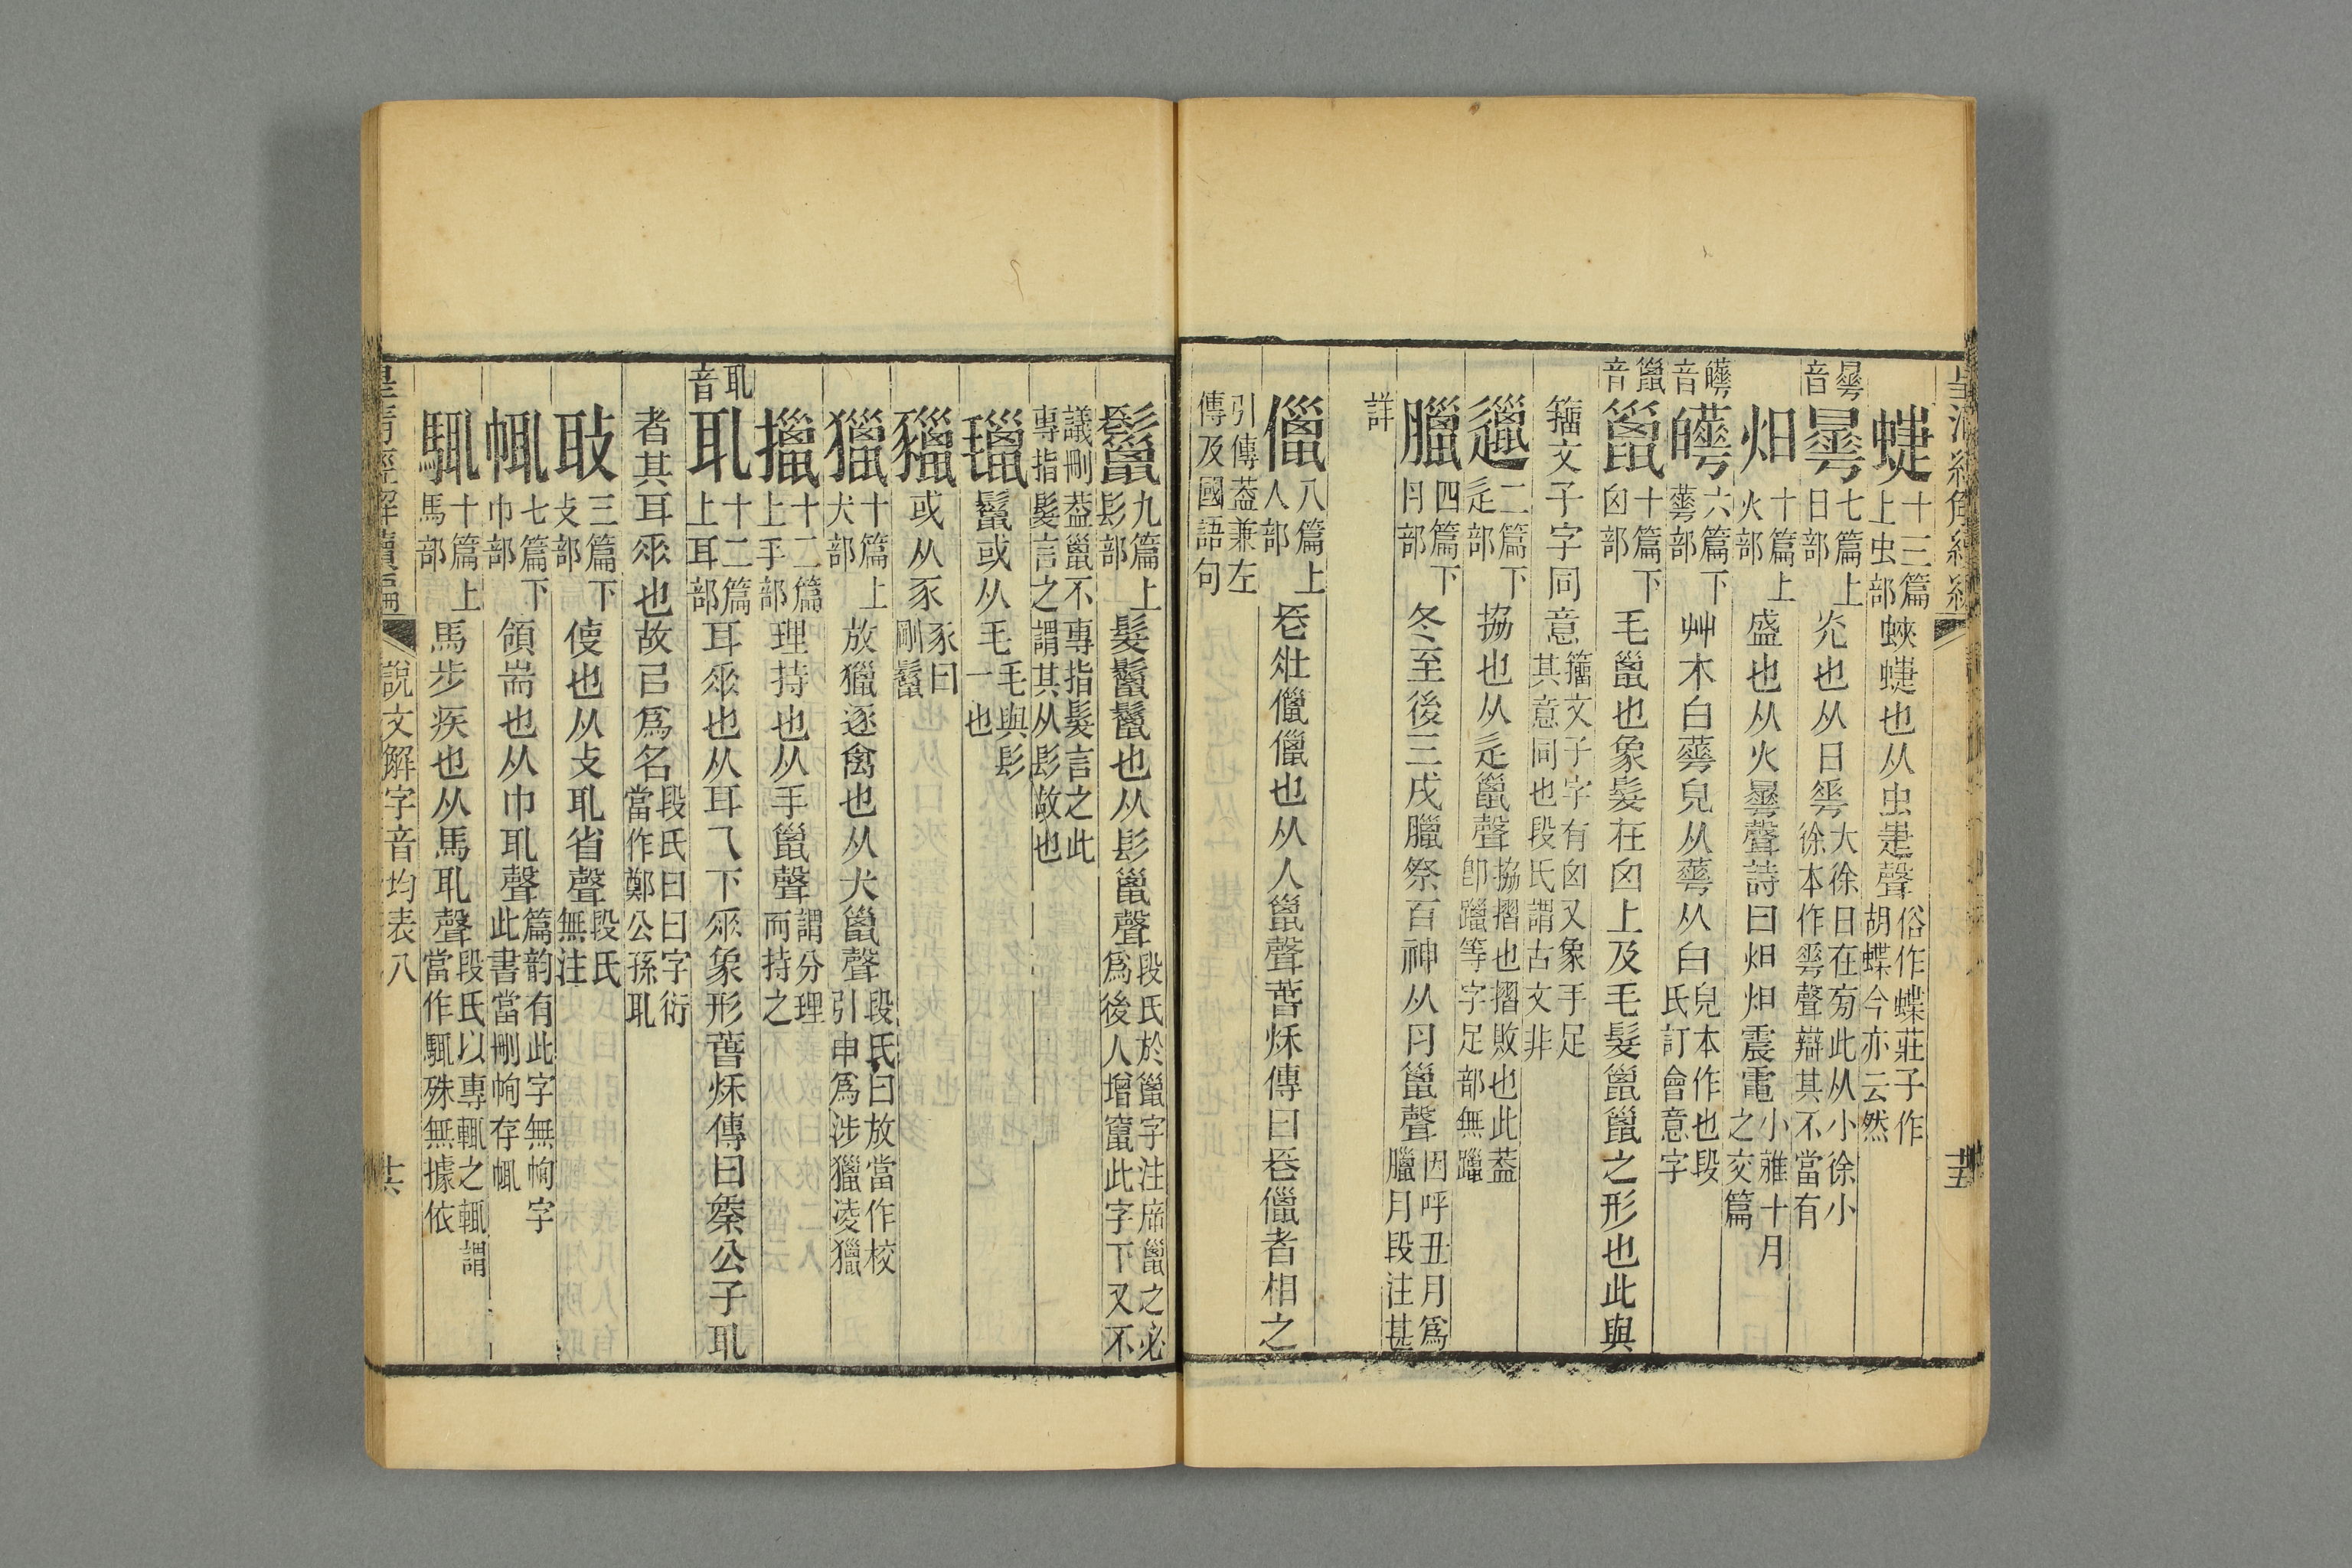 皇清經解續編
卅五
蜨十三篇上虫部蛺蜨也从虫疌聲俗作蝶莊子作胡蝶今亦云然
曅音
曅七篇上日部光也从日𠌶大徐曰在㫄此从小徐小徐本作𠌶聲辯其不當有
𤆍十篇上火部盛也从火曅聲詩曰𤆍𤆍震電小雅十月之交篇
皣音
皣六篇下華部艸木白華皃从華从白皃本作也段氏訂會意字
巤音
巤十篇下囟部毛巤也象髮在囟上及毛髮巤巤之形也此與
籒文子字同意籒文子字有囟又象手足其意同也段氏謂古文非
邋二篇下辵部搚也从辵巤聲搚摺也摺敗也此葢卽躐等字足部無躐
臘四篇下肉部冬至後三戌臘祭百神从肉巤聲因呼丑月爲臘月段注甚
詳
儠八篇上人部長壯儠儠也从人巤聲春秋傳曰長儠者相之
引傳葢兼左傳及國語句
鬛九篇上髟部髮鬛鬛也从髟巤聲段氏於巤字注席巤之必爲後人增竄此字下又不
議刪葢巤不專指髮言之此專指髮言之謂其从髟故也
㲱鬛或从毛毛與髟一也
獵或从豕豕曰剛鬛
獵十篇上犬部放獵逐禽也从犬巤聲段氏曰放當作校引申爲涉獵淩獵
擸十二篇上手部理持也从手巤聲謂分理而持之
耴音
耴十二篇上耳部耳𠂹也从耳乁下𠂹象形春秋傳曰秦公子耴
者其耳𠂹也故㠯爲名段氏曰曰字衍當作鄭公孫耴
㪇三篇下攴部使也从攴耴省聲段氏無注
㡇七篇下巾部領耑也从巾耴聲篇韵有此字無㡇字此書當刪㡇存㡇
馲十篇上馬部馬步疾也从馬耴聲段氏以專輒之輒謂當作馲殊無據依
皇清經解續編
說文解字音均表八
卅六